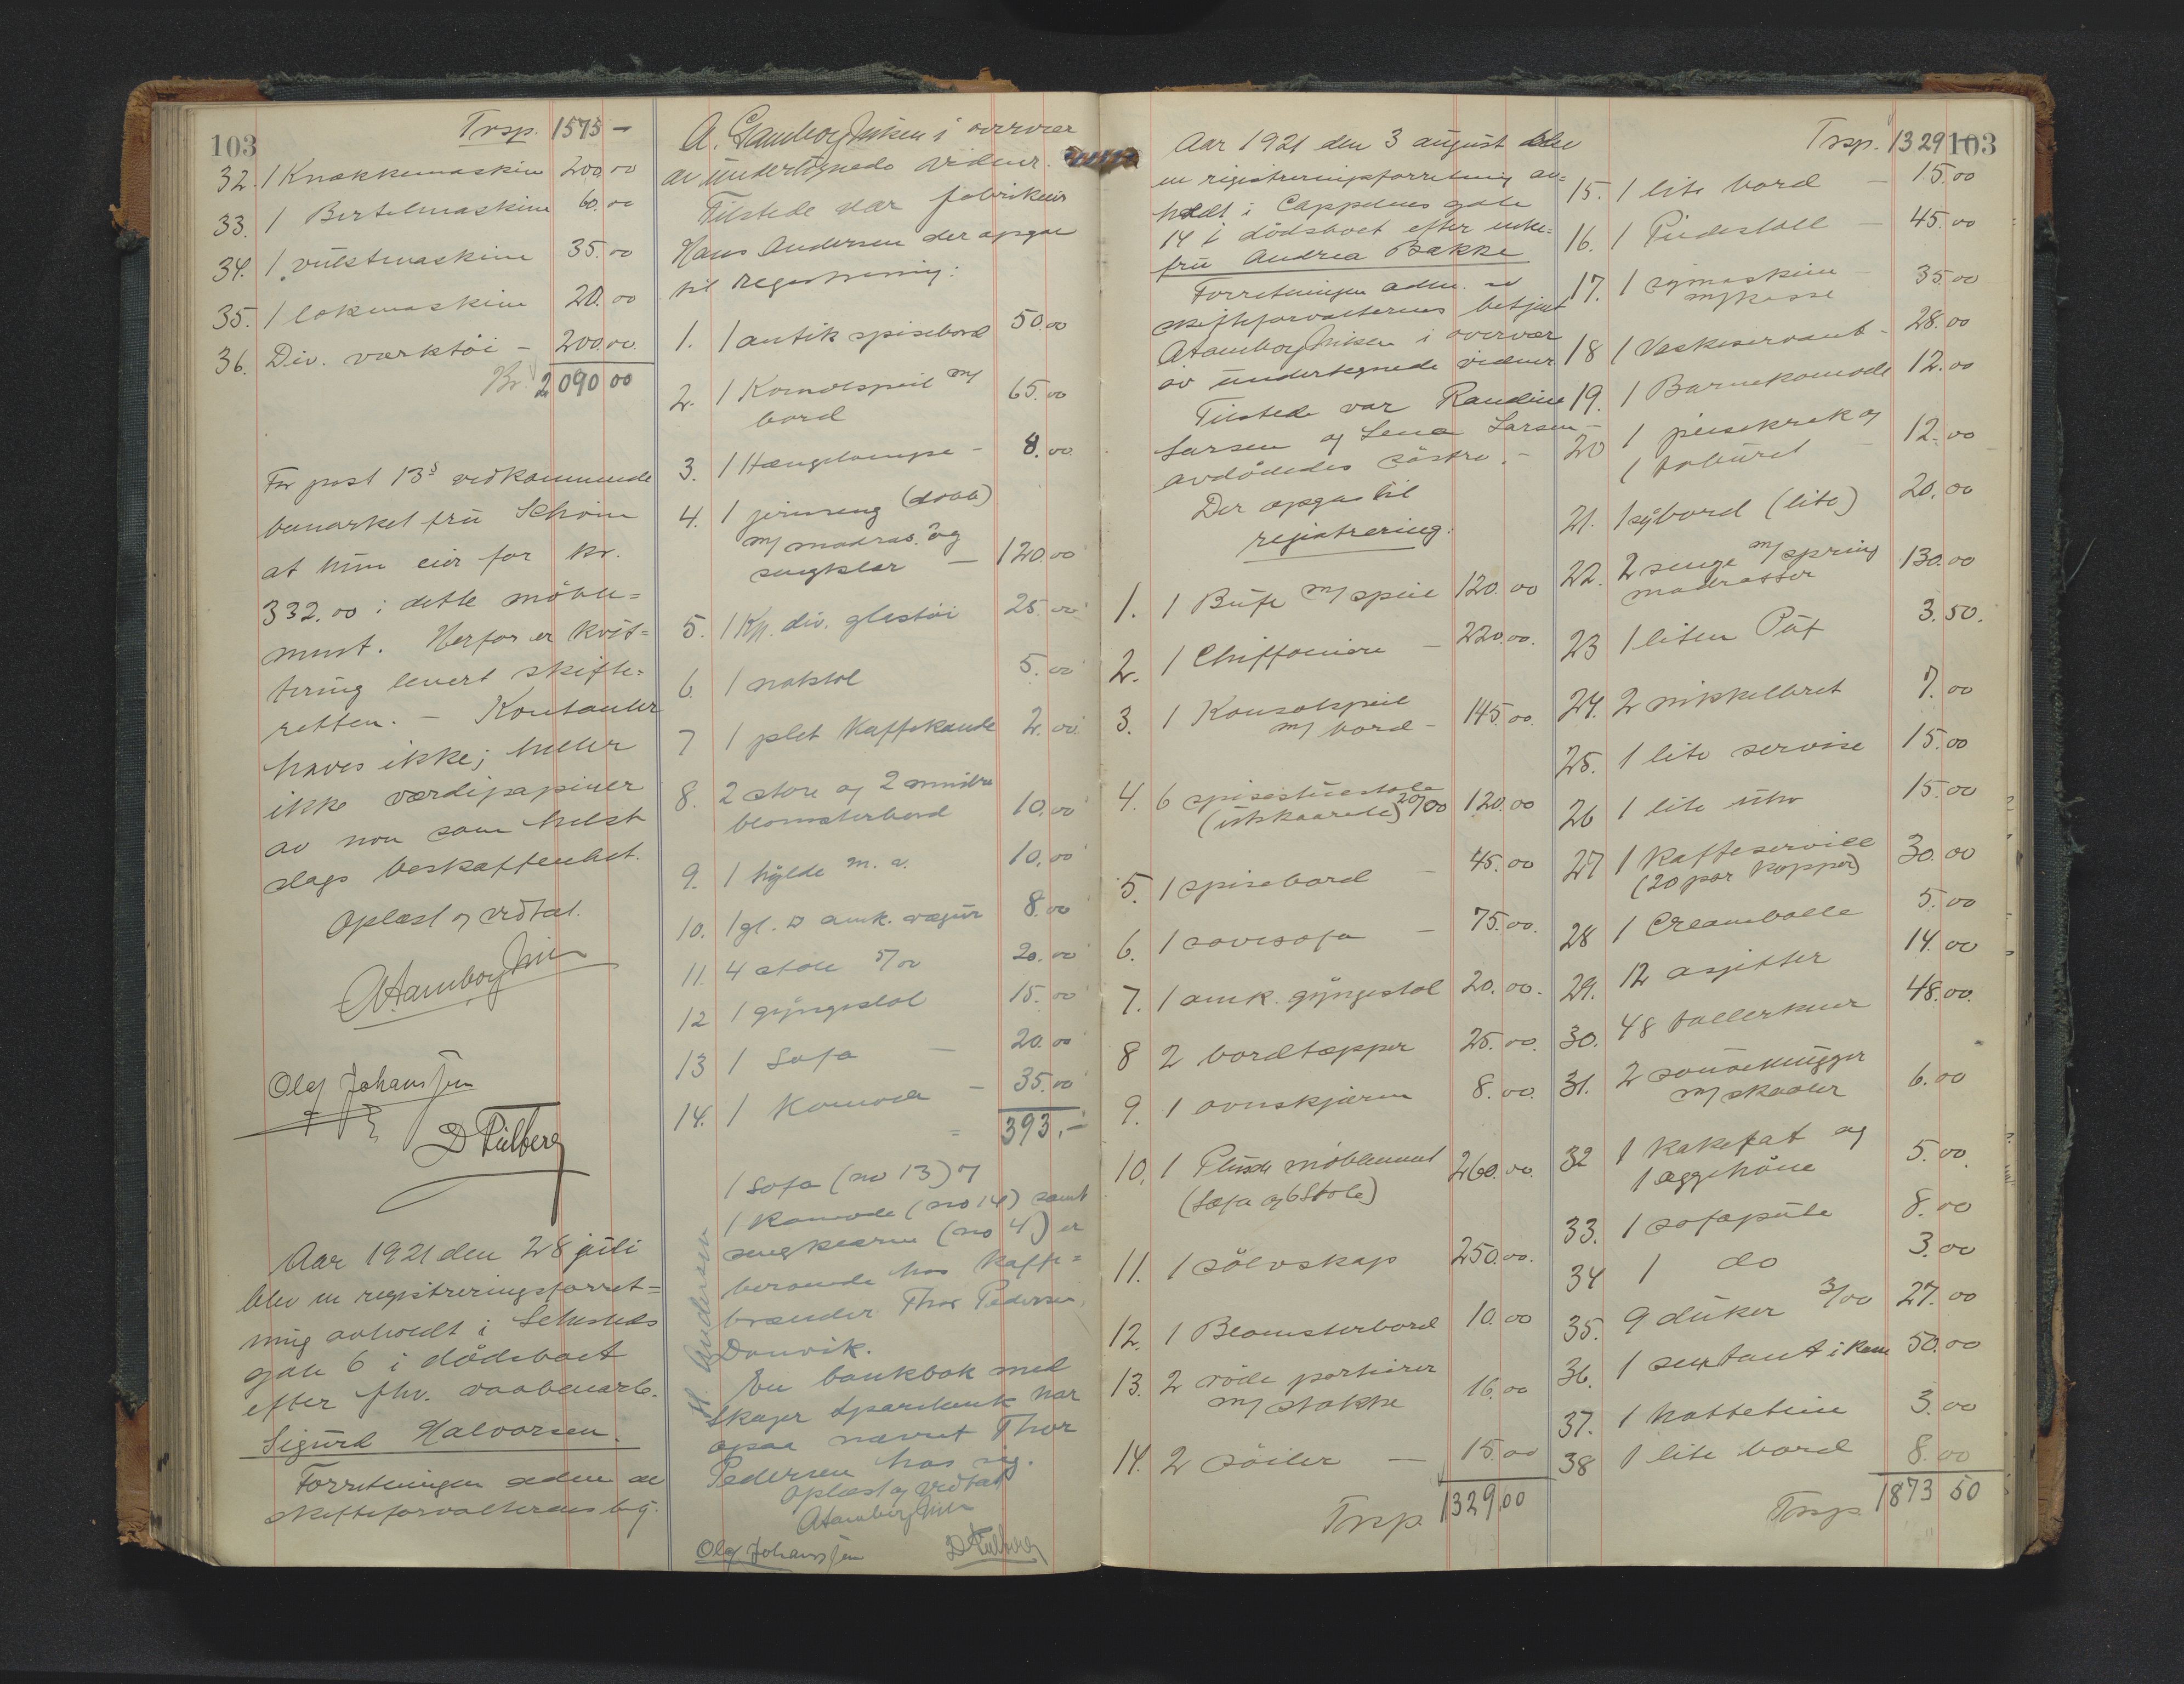 103
Trsp. 1575 —
32. 1 Knakkemaskin 200.00
33. 1 Bertelmaskine 60.00
34. 1 vulstmaskine 35.00
35. 1 lokmaskine 20.00
36. Div. værktöi — 200.00.
Kr. 2090 00
For post 13s vedkommende
bemerket fru Schou
at hun eier for kr.
332.00 i dette möble=
ment. Herfor er kvit=
tering levert skifte=
retten. — Kontanter
haves ikke; heller
ikke værdipapirer
av noe som helst
slags beskaffenhet.
Oplæst og vedtat.
Olaf Johanssen
Aar 1921 den 28 juli
blev en registreringsforret=
ning avholdt i Schesteds
gate 6 i dödsboet
efter fhv. vaabenarb.
Sigurd Halvorsen.
Forretningen adm. av
skifteforvalterens btj.
A. Stamboey Nilsen i overvær
av undertegnede vidner.
Tilstede var fabrikeier
Hans Andersen der opgav
til registrering:
1. 1 antik spisebord 50.00
2. 1 Konsolspeil m/
bord 65.00
3. 1 Hængelampe — 8.00
4. 1 jernseng (dobb)
m/ madras og
sengklær — 120.00
5. 1 Kp. div. glastöi 25.00
6. 1 natstol 5.00
7 1 plet Kaffekande 2.00
8. 2 store og 2 mindre
blomsterbord 10.00
9. 1 hylde m. v. 10.00
10. 1 gl. amk. vægur 8.00
11. 4 stole 5/00 20.00
12 1 gyngestol 15.00
13 1 Sofa — 20.00
14. 1 Komode — 35.00
= 393.—
1 Sofa (no 13) og
1 Komode (no 14) samt
sengklærne (no 4) er
beroende hos Kaffe=
brænder Thor Pedersen,
Danvik.
En bankbok med
Skoger Sparebank har
ogsaa nævnt Thor
Pedersen hos sig.
Oplæst og vedtat
H. Andersen
Olaf Johanssen
Aar 1921 den 3 august blev
en registreringsforretning av=
holdt i Cappelens gate
14 i dödsboet efter enke=
fru Andrea Bakke
Forretningen adm. av
skifteforvalterens betjent
A Stamboey Nilsen i overvær
av undertegnede vidner.
Tilstede var Randine
Larsen og Lena Larsen —
avdödedes söstre. —
Der opgas til
registrering:
1. 1 Büfe m/ speil 120.00
2. 1 Chiffoniere — 220.00.
3. 1 Konsolspeil
m/ bord — 145.00.
4. 6 spisestuestole
(utskaarede) 20/00 120.00
5. 1 spisebord — 45.00
6. 1 sovesofa — 75.00.
7. 1 amk. gyngestol 20.00.
8 2 bordtæpper 25.00.
9. 1 ovnskjærm 8.00.
10. 1 Plüsch möblement 260.00.
(Sofa og 6 Stole)
11. 1 sölvskap 250.00.
12. 1 Blomsterbord 10.00
13. 2 röde portierer
m/ stokke 16.00
14. 2 söiler — 15.00
Trsp. 1329,00
Trsp. 1329 —
103
15. 1 lite bord — 15.00
16. 1 Piedestall — 45.00
17. 1 symaskine —
m/kasse 35.00
18 1 Vaskeservant — 28.00
19. 1 Barnekomode 12.00
20 1 peisekrak og
1 taburet — 12.00
21. 1 sybord (lite) 20.00
22. 2 senge m/ spring
madrasser 130.00
23 1 liten Püf 3.50.
24. 2 nikkelbret 7.00
25. 1 lite servise 15.00
26 1 lite uhr 15.00
27 1 Kaffeservice
(20 par kopper) 30.00
28 1 Creambolle 5.00
29. 12 asjetter 14.00
30. 48 tallerkner 48.00.
31. 2 sausemugger
m/ skaaler 6.00
32 1 kakefat og
1 æggehöne 5.00.
33. 1 sofapute 8.00
34 1 do 3.00
35. 9 duker 3/00 27.00
36. 1 sextant i kasse 50.00
37. 1 hatteteine 3.00
38 1 lite bord 8.00
Trsp. 1873 50